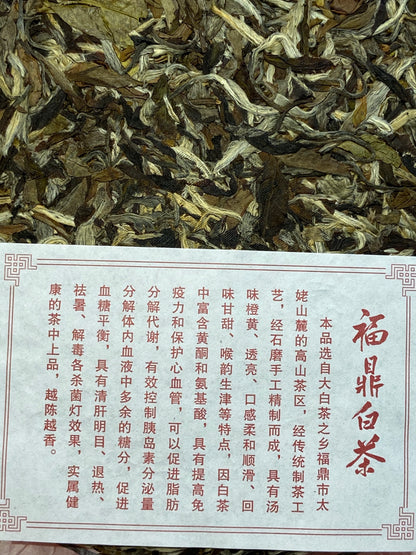 福鼎白茶
本品选自大白茶之乡福鼎市太
姥山麓的高山茶区，经传统制茶工
艺，经石磨手工精制而成，具有汤
味橙黄、透亮、口感柔和顺滑、回
味甘甜、喉韵生津等特点，因白茶
中富含黄酮和氨基酸，具有提高免
疫力和保护心血管，可以促进脂肪
分解代谢，有效控制胰岛素分泌量
分解体内血液中多余的糖分，促进
血糖平衡，具有清肝明目、退热、
祛暑、解毒各杀菌灯效果，实属健
康的茶中上品，越陈越香。